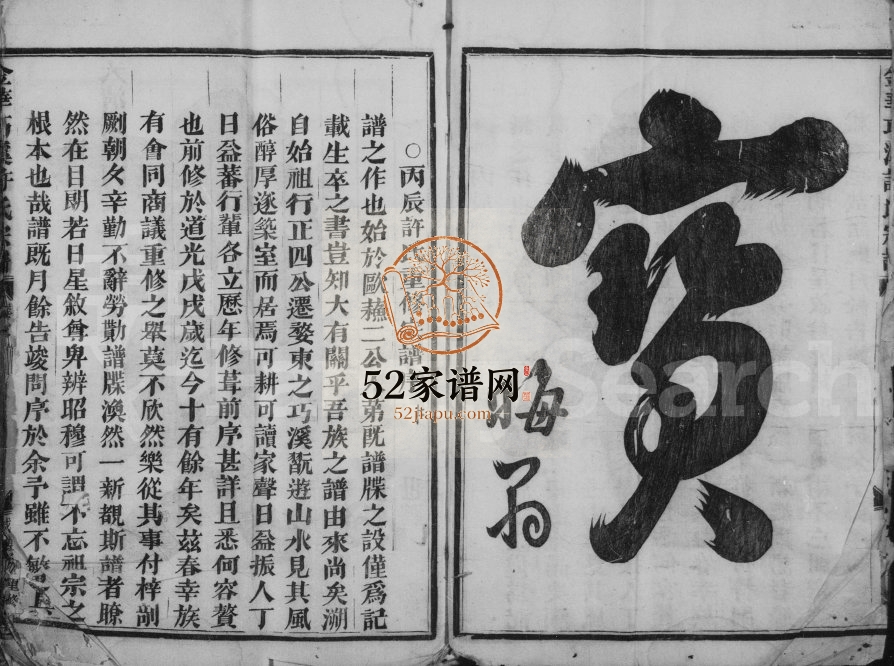 寶
晦翁
○丙辰許重修譜
譜之作也始於歐蘇二公弟既譜牒之設僅爲記
載生卒之書豈知大有關乎吾族之譜由來尚矣溯
自始祖行正四公遷婺東之巧溪翫遊山水見其風
俗醇厚遂築室而居焉可耕可讀家聲日益振人丁
日益蕃行輩各立歷年修葺前序甚詳且悉何容贅
也前修於道光戊戌歲迄今十有餘年矣兹春幸族
有會同商議重修之舉莫不欣然樂從其事付梓剞
劂朝夕辛勤不辭勞勩譜牒渙然一新覩斯譜者瞭
然在目明若日星敘尊卑辨昭穆可謂不忘祖宗之
根本也哉譜既月餘告竣問序於余予雖不繁
52家谱网
52jiapu.com
Search